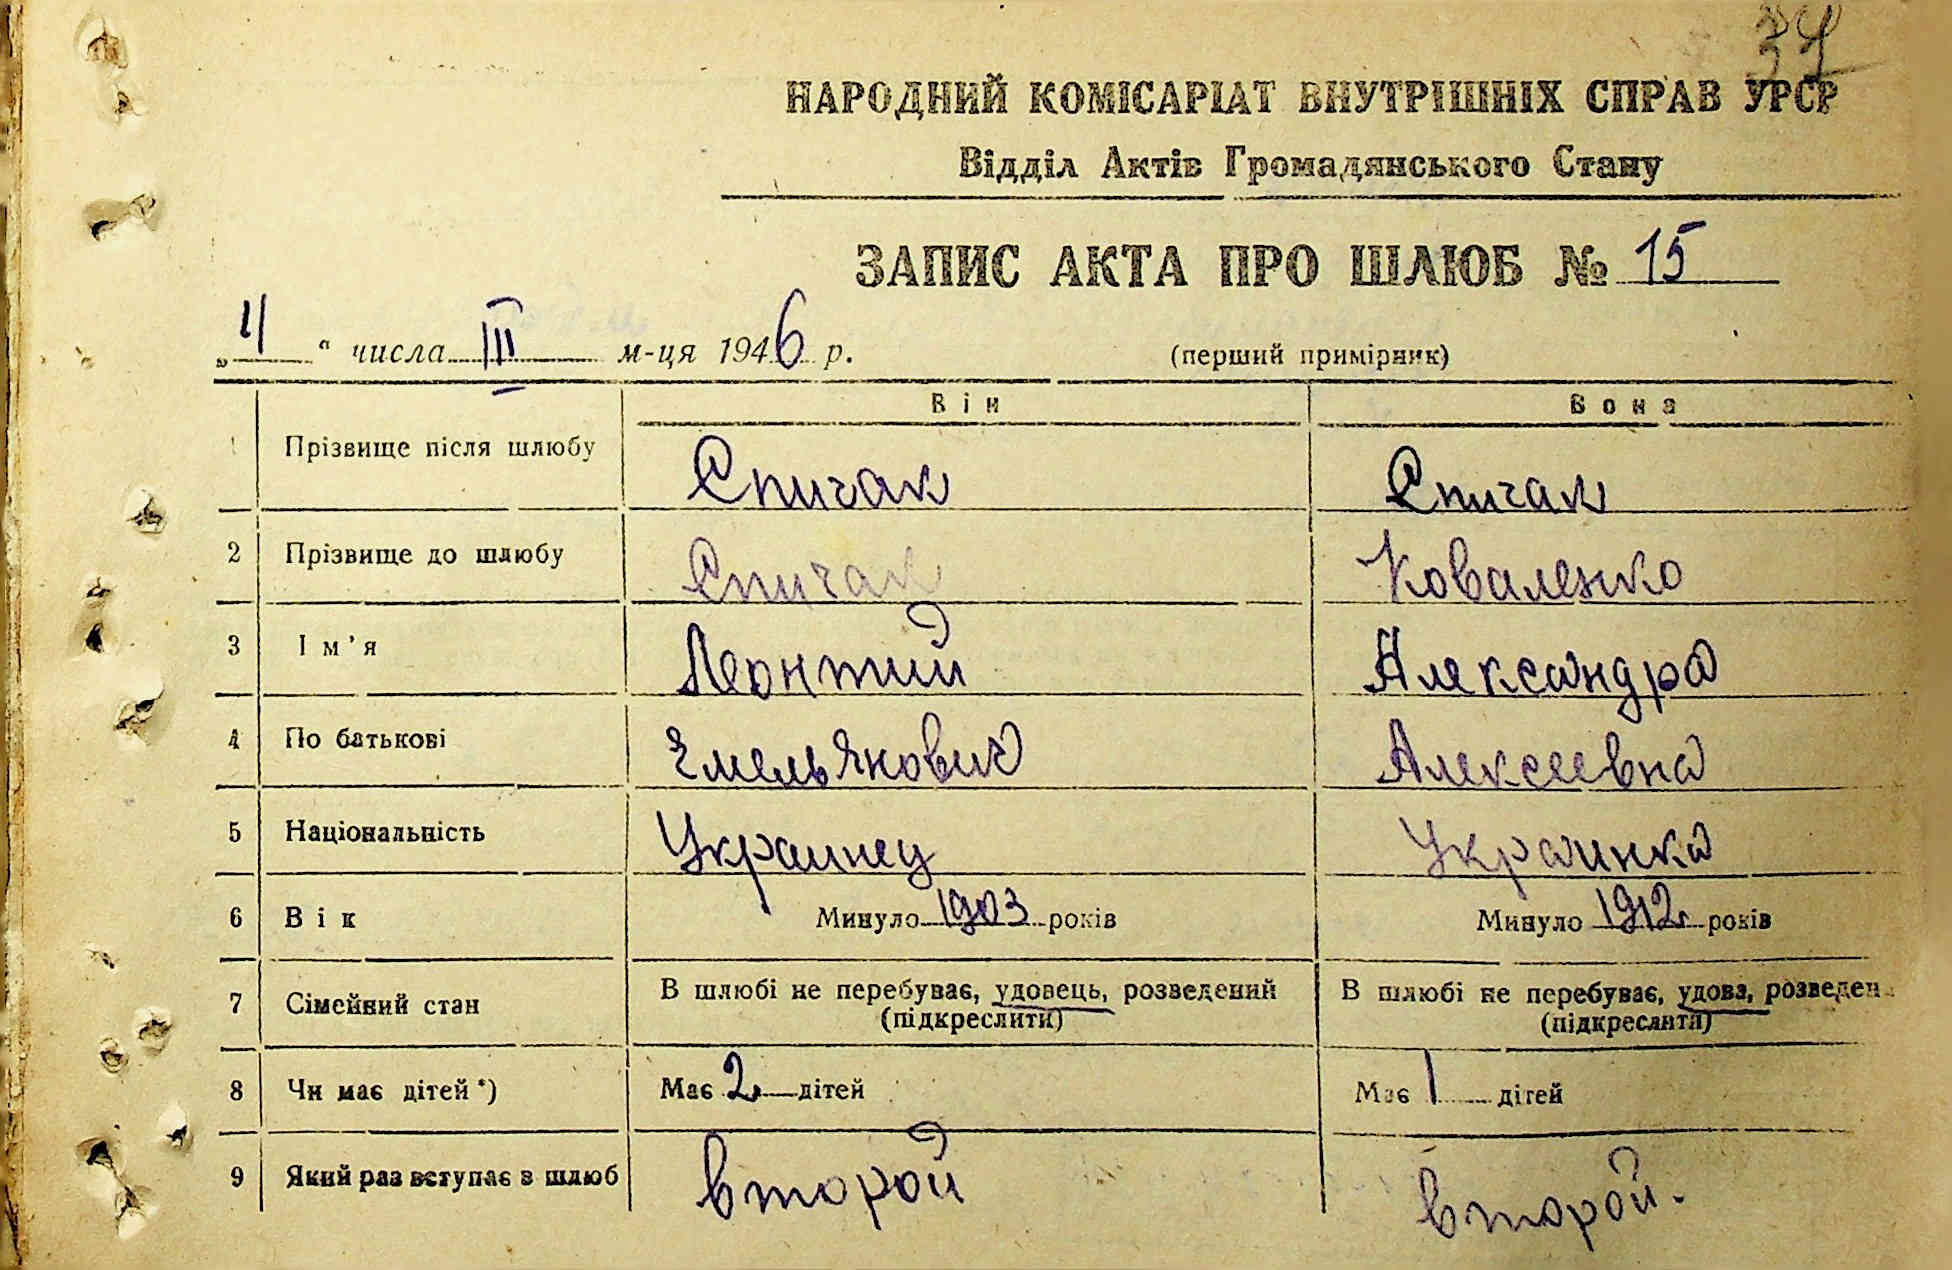 37
НАРОДНИЙ КОМІСАРІАТ ВНУТРІШНІХ СПРАВ УРСР
Відділ Актів Громадянського Стану
ЗАПИС АКТА ПРО ШЛЮБ № 15
„ 11 “ числа III м-ця 1946 р. (перший примірник)
Він Вона
1 Прізвище після шлюбу Спичак Спичак
2 Прізвище до шлюбу Спичак Коваленко
3 Ім'я Леонтий Александра
4 По батькові Емельянович Алексеевна
5 Національність Украинец Украинка
6 Вік Минуло 1903 років Минуло 1912 років
7 Сімейний стан В шлюбі не перебуває, удовець, розведений В шлюбі не перебуває, удова, розведен
(підкреслити) (підкреслити)
8 Чи має дітей *) Має 2 дітей Має 1 дітей
9 Який раз вступає в шлюб второй второй.